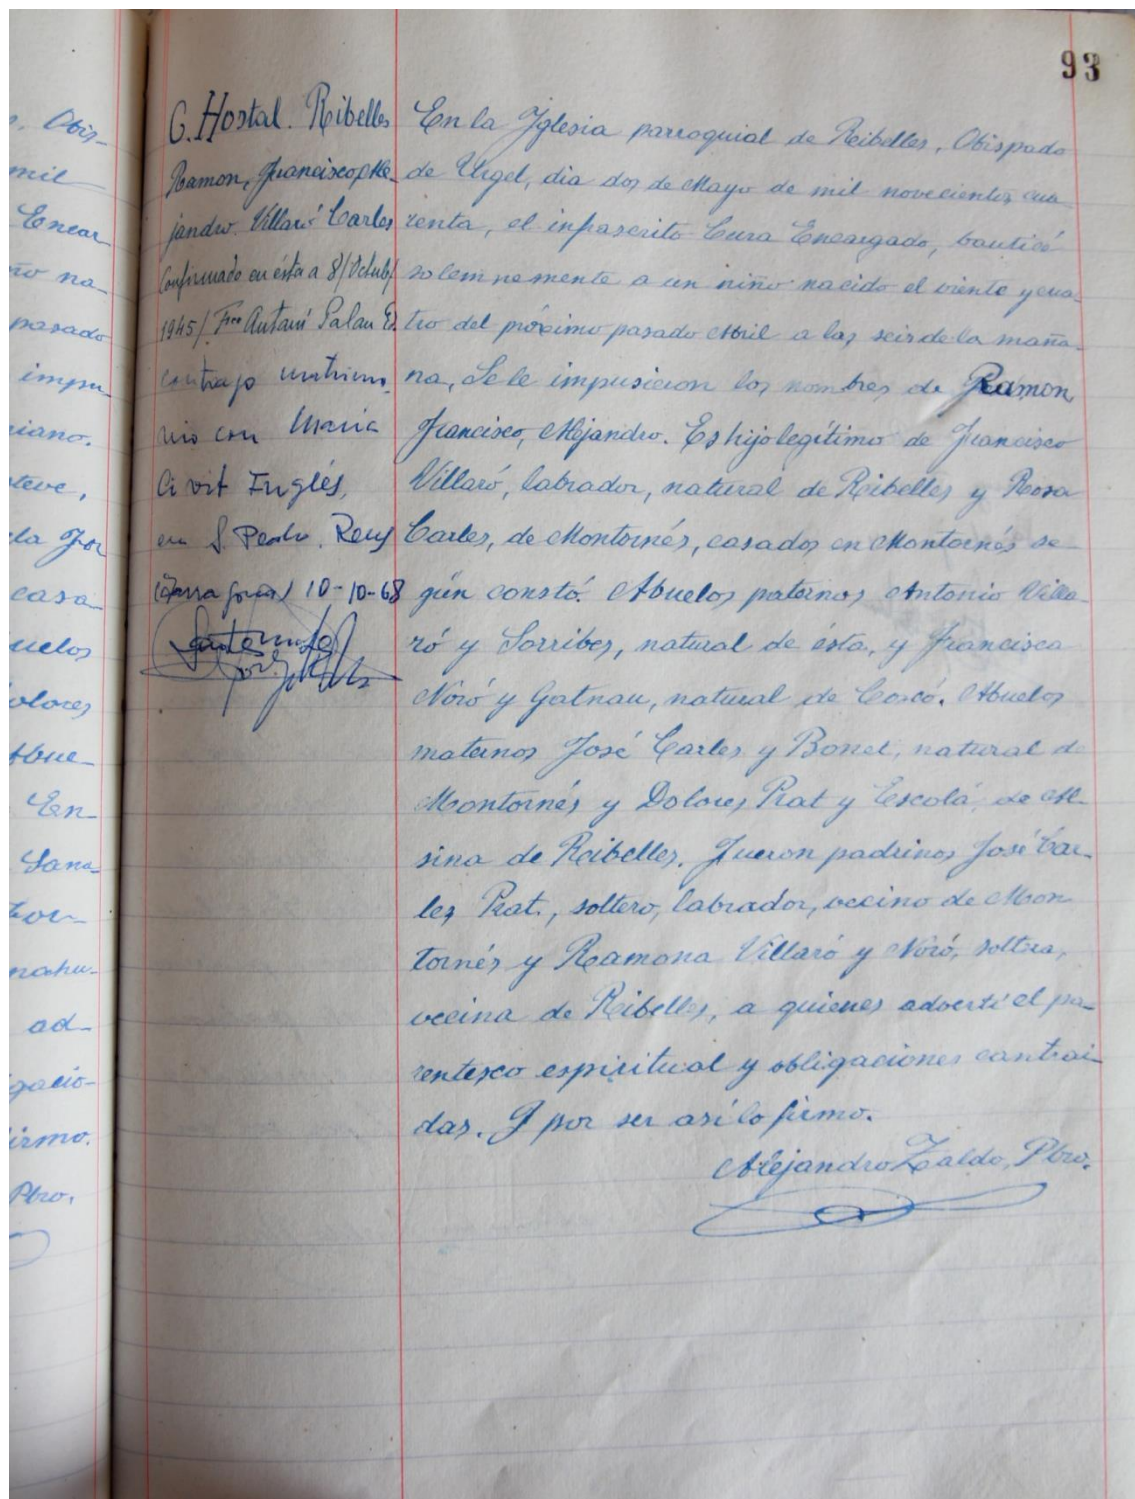 93
C. Hostal. Ribelles
Ramon, Francisco, Ale-
jandro. Villaró Carles
Confirmado en ésta a 8/Octub/
1945/ Fco Antoni Palau
contrajo matrimo-
nio con María
Civit Inglés,
en S. Pedro. Reus
(Tarragona) 10-10-68
En la Iglesia parroquial de Ribelles, Obispado
de Urgel, dia dos de Mayo de mil novecientos cua
renta, el infrascrito Cura Encargado, bauticé
solemnemente a un niño nacido el viente y cua-
tro del próximo pasado Abril a las seis de la maña-
na, Se le impusieron los nombres de Ramon,
Francisco, Alejandro. Es hijo legítimo de Francisco
Villaró, labrador, natural de Ribelles y Rosa
Carles, de Montornés, casados en Montornés se-
gún constó. Abuelos paternos Antonio Villa-
ró y Sorribes, natural de ésta, y Francisca
Noró y Gatnau, natural de Coscó. Abuelos
maternos José Carles y Bonet, natural de
Montornés y Dolores Prat y Escolá, de Al-
sina de Ribelles. Fueron padrinos José Car-
les Prat., soltero, labrador, vecino de Mon-
tornés y Ramona Villaró y Noró, soltera,
vecina de Ribelles, a quienes advertí el pa-
rentesco espiritual y obligaciones contrai-
das. Y por ser así lo firmo.
Alejandro Zaldo, Pbro.
o. Obis-
mil
Encar
ño na-
pasado
impu
riano.
teve,
la For
casa-
uelos
olores
Abue-
En-
Sana-
ad-
gacio-
irmo.
Pbro.